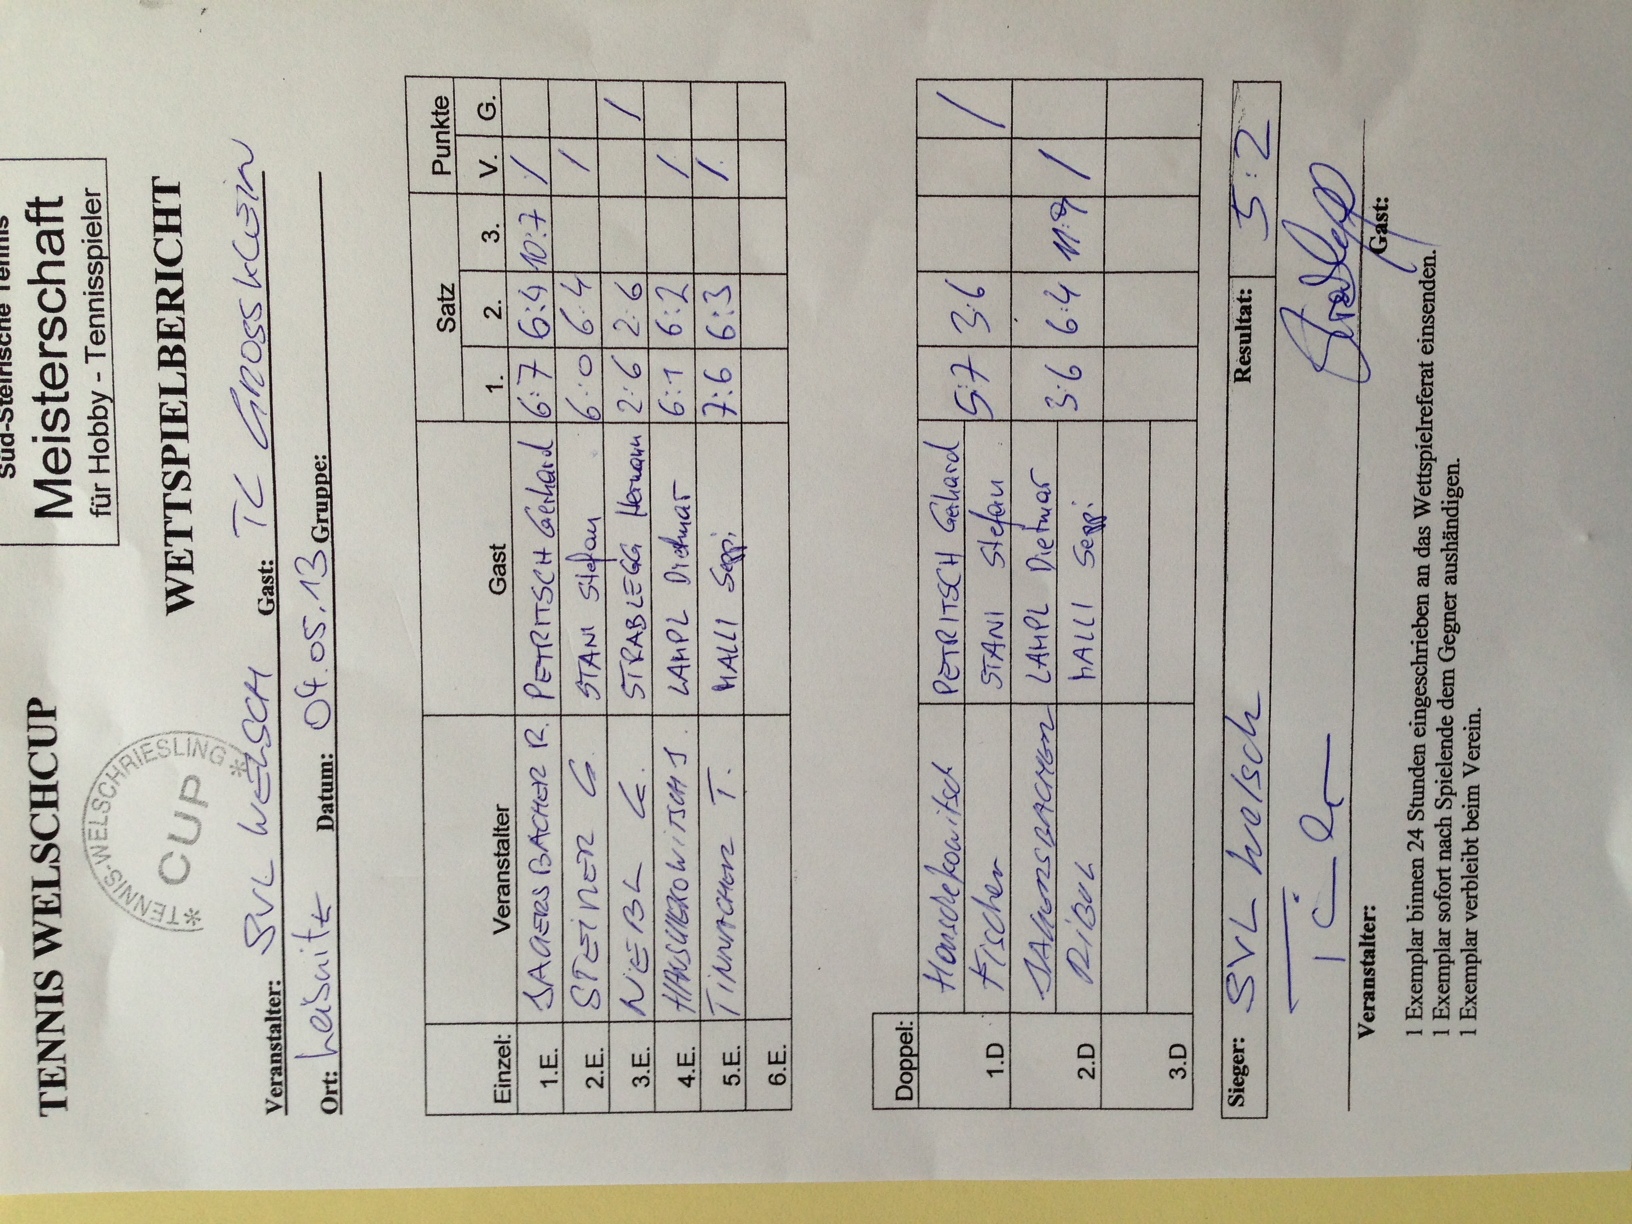 TENNIS WELSCHCUP
Süd-Steirische Tennis
Meisterschaft
für Hobby - Tennisspieler
*TENNIS-WELSCHRIESLING*
CUP
WETTSPIELBERICHT
Veranstalter: SVL WELSCH Gast: TC GROSSKLEIN
Ort: Leibnitz Datum: 04.05.13 Gruppe:
Einzel: Veranstalter Gast Satz Punkte
1. 2. 3. V. G.
1.E. JAGERSBACHER R. PETRITSCH Gerhard 6:7 6:4 10:7 /
2.E. STEINER G. STANI Stefan 6:0 6:4 /
3.E. NEBL G. STRABLEGG Hermann 2:6 2:6 /
4.E. J. LAMPL Dietmar 6:1 6:2 /
5.E. TINNACHER T. MALLI Seppi 7:6 6:3 /
6.E.
Doppel:
1.D PETRITSCH Gerhard 5:7 3:6 /
Fischer STANI Stefan
2.D LAMPL Dietmar 3:6 6:4 11:9 /
MALLI Seppi
3.D
Sieger: SVL Welsch Resultat: 5:2
Veranstalter: Gast:
1 Exemplar binnen 24 Stunden eingeschrieben an das Wettspielreferat einsenden.
1 Exemplar sofort nach Spielende dem Gegner aushändigen.
1 Exemplar verbleibt beim Verein.